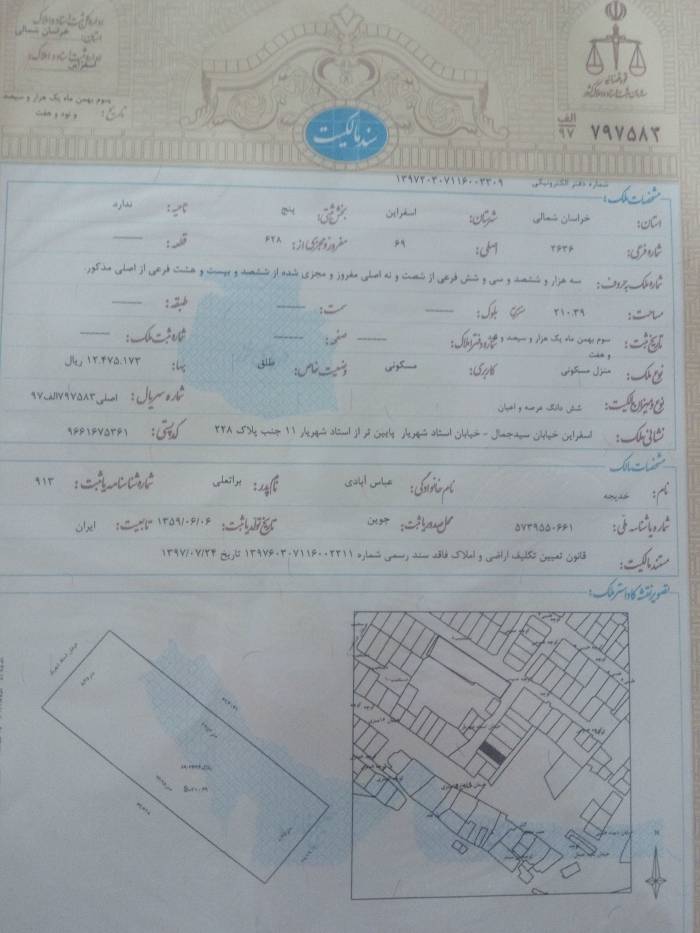 اداره کل ثبت اسناد و املاک
استان: خراسان شمالی
اداره ثبت اسناد و املاک:
اسفراین
تاریخ: سوم بهمن ماه یک هزار و سیصد و نود و هفت
قوه قضائیه
سازمان ثبت اسناد و املاک کشور
الف
۹۷
۷۹۷۵۸۳
سند مالکیت
شماره دفتر الکترونیکی ۱۳۹۷۲۰۳۰۷۱۱۶۰۰۳۳۰۹
مشخصات ملک:
استان: خراسان شمالی شهرستان: اسفراین بخش ثبتی: پنج ناحیه: ندارد
شماره فرعی: ۳۶۳۶ اصلی: ۶۹ مفروز و مجزی از: ۶۲۸ قطعه: ——
شماره ملک بحروف: سه هزار و ششصد و سی و شش فرعی از شصت و نه اصلی مفروز و مجزی شده از ششصد و بیست و هشت فرعی از اصلی مذکور
مساحت: ۲۱۰.۳۹ مترمربع بلوک: —— سمت: —— طبقه: ——
تاریخ ثبت: سوم بهمن ماه یک هزار و سیصد و نود و هفت شماره دفتر املاک: —— صفحه: —— شماره ثبت ملک: ——
نوع ملک: منزل مسکونی کاربری: مسکونی وضعیت خاص: طلق بهاء: ۱۲.۴۷۵.۱۷۳ ریال
نوع و میزان مالکیت: شش دانگ عرصه و اعیان شماره سریال: اصلی ۷۹۷۵۸۳الف۹۷
نشانی ملک: اسفراین خیابان سیدجمال - خیابان استاد شهریار پایین تر از استاد شهریار ۱۱ جنب پلاک ۲۲۸ کد پستی: ۹۶۶۱۶۷۵۳۶۱
مشخصات مالک
نام: خدیجه نام خانوادگی: عباس آبادی نام پدر: براتعلی شماره شناسنامه یا ثبت: ۹۱۳
شماره یا شناسه ملی: ۵۷۳۹۵۵۰۶۶۱ محل صدور یا ثبت: جوین تاریخ تولد یا ثبت: ۱۳۵۹/۰۶/۰۶ تابعیت: ایران
مستند مالکیت: قانون تعیین تکلیف اراضی و املاک فاقد سند رسمی شماره ۱۳۹۷۶۰۳۰۷۱۱۶۰۰۲۲۱۱ تاریخ ۱۳۹۷/۰۷/۲۴
تصویر نقشه کاداستر ملک: